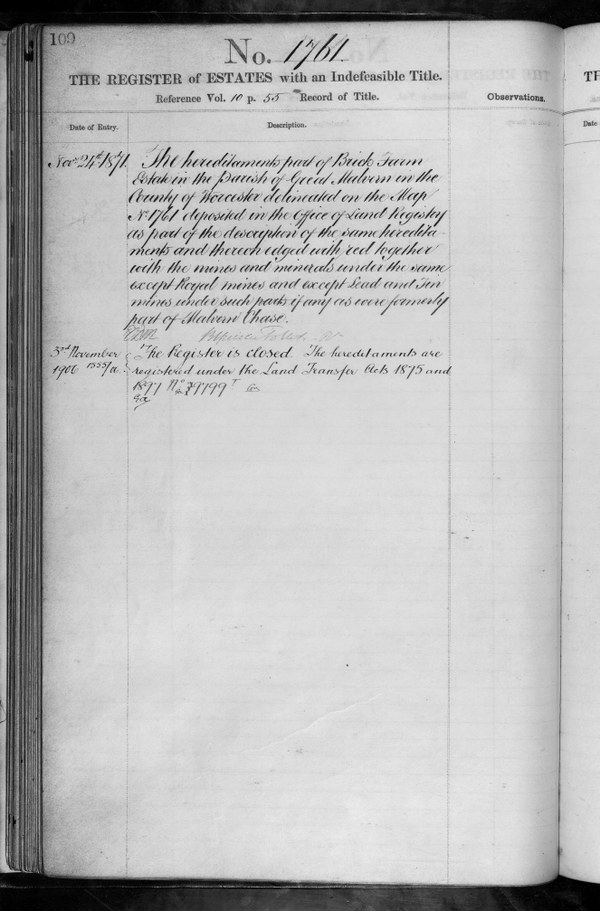 109
No. 1761
THE REGISTER of ESTATES with an Indefeasible Title.
Reference Vol. 10 p. 55 Record of Title.
Observations.
Date of Entry.
Description.
Novr 24th 1871.
The hereditaments part of Brick Farm
Estate in the Parish of Great Malvern in the
County of Worcester delineated on the Map
No 1761 deposited in the Office of Land Registry
as part of the description of the same heredita-
ments and thereon edged with red together
with the mines and minerals under the same
except Royal mines and except Lead and Tin
mines under such parts if any as were formerly
part of Malvern Chase.
3rd November
1906
The Register is closed. The hereditaments are
registered under the Land Transfer Acts 1875 and
1897 No
TH
Date